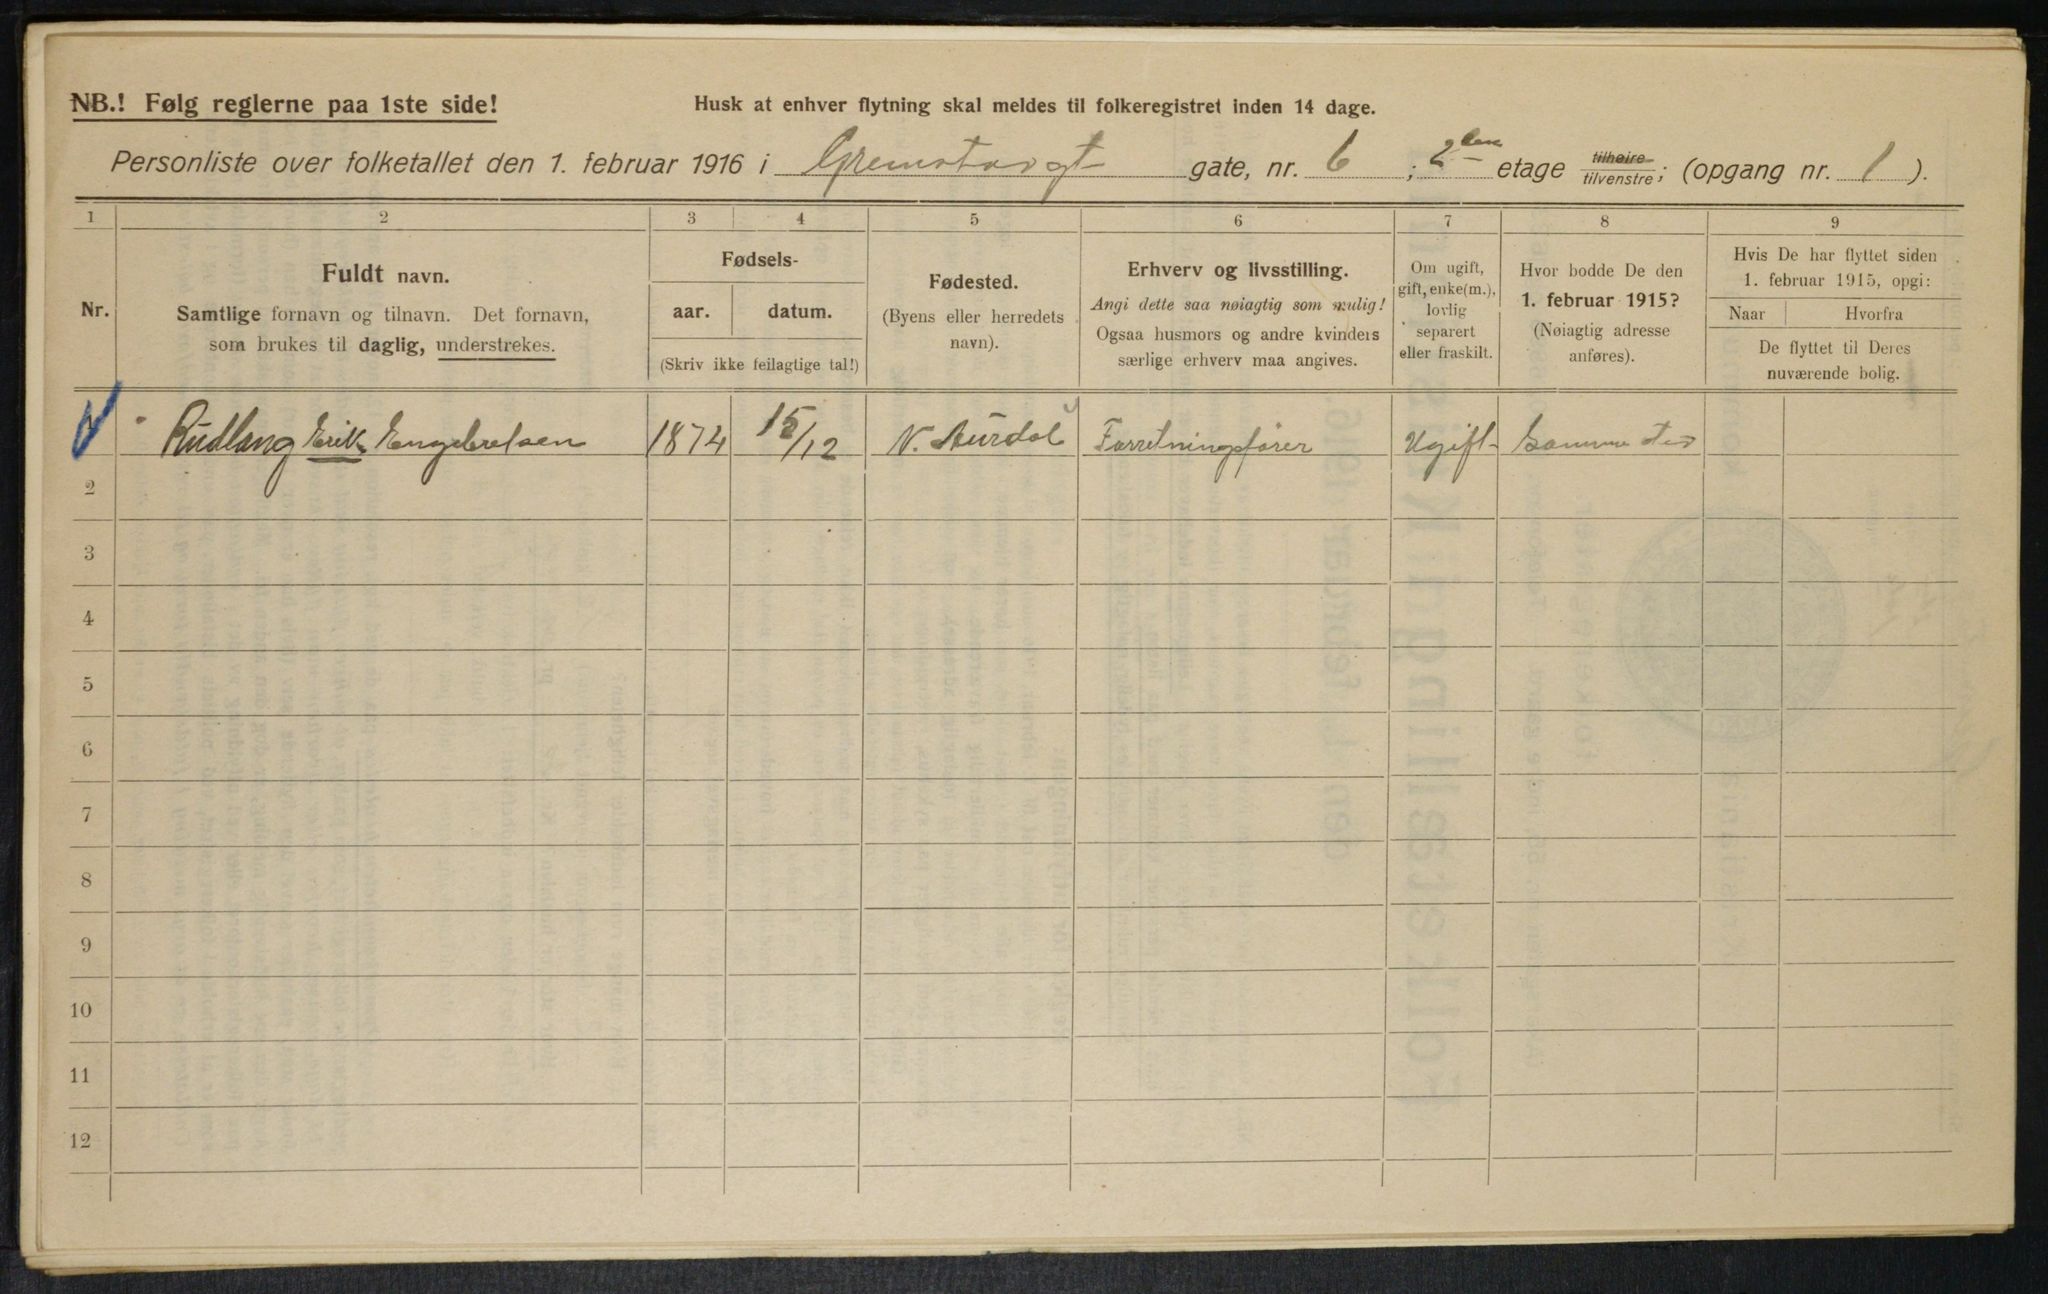 NB.! Følg reglerne paa 1ste side!
Husk at enhver flytning skal meldes til folkeregistret inden 14 dage.
Personliste over folketallet den 1. februar 1916 i Grenstavgt gate, nr. 6 ; 2den etage tilhøire tilvenstre; (opgang nr. 1 ).
1 2 3 4 5 6 7 8 9
Nr.
Fuldt navn.
Samtlige fornavn og tilnavn. Det fornavn,
som brukes til daglig, understrekes.
Fødsels-
aar. datum.
(Skriv ikke feilagtige tal!)
Fødested.
(Byens eller herredets
navn).
Erhverv og livsstilling.
Angi dette saa nøiagtig som mulig!
Ogsaa husmors og andre kvinders
særlige erhverv maa angives.
Om ugift,
gift, enke(m.),
lovlig
separert
eller fraskilt.
Hvor bodde De den
1. februar 1915?
(Nøiagtig adresse
anføres).
Hvis De har flyttet siden
1. februar 1915, opgi:
Naar Hvorfra
De flyttet til Deres
nuværende bolig.
Rudlang Erik Engebretsen 1874 15/12 N. Aurdal Forretningsfører Ugift Samme sted
2
3
4
5
6
7
8
9
10
11
12